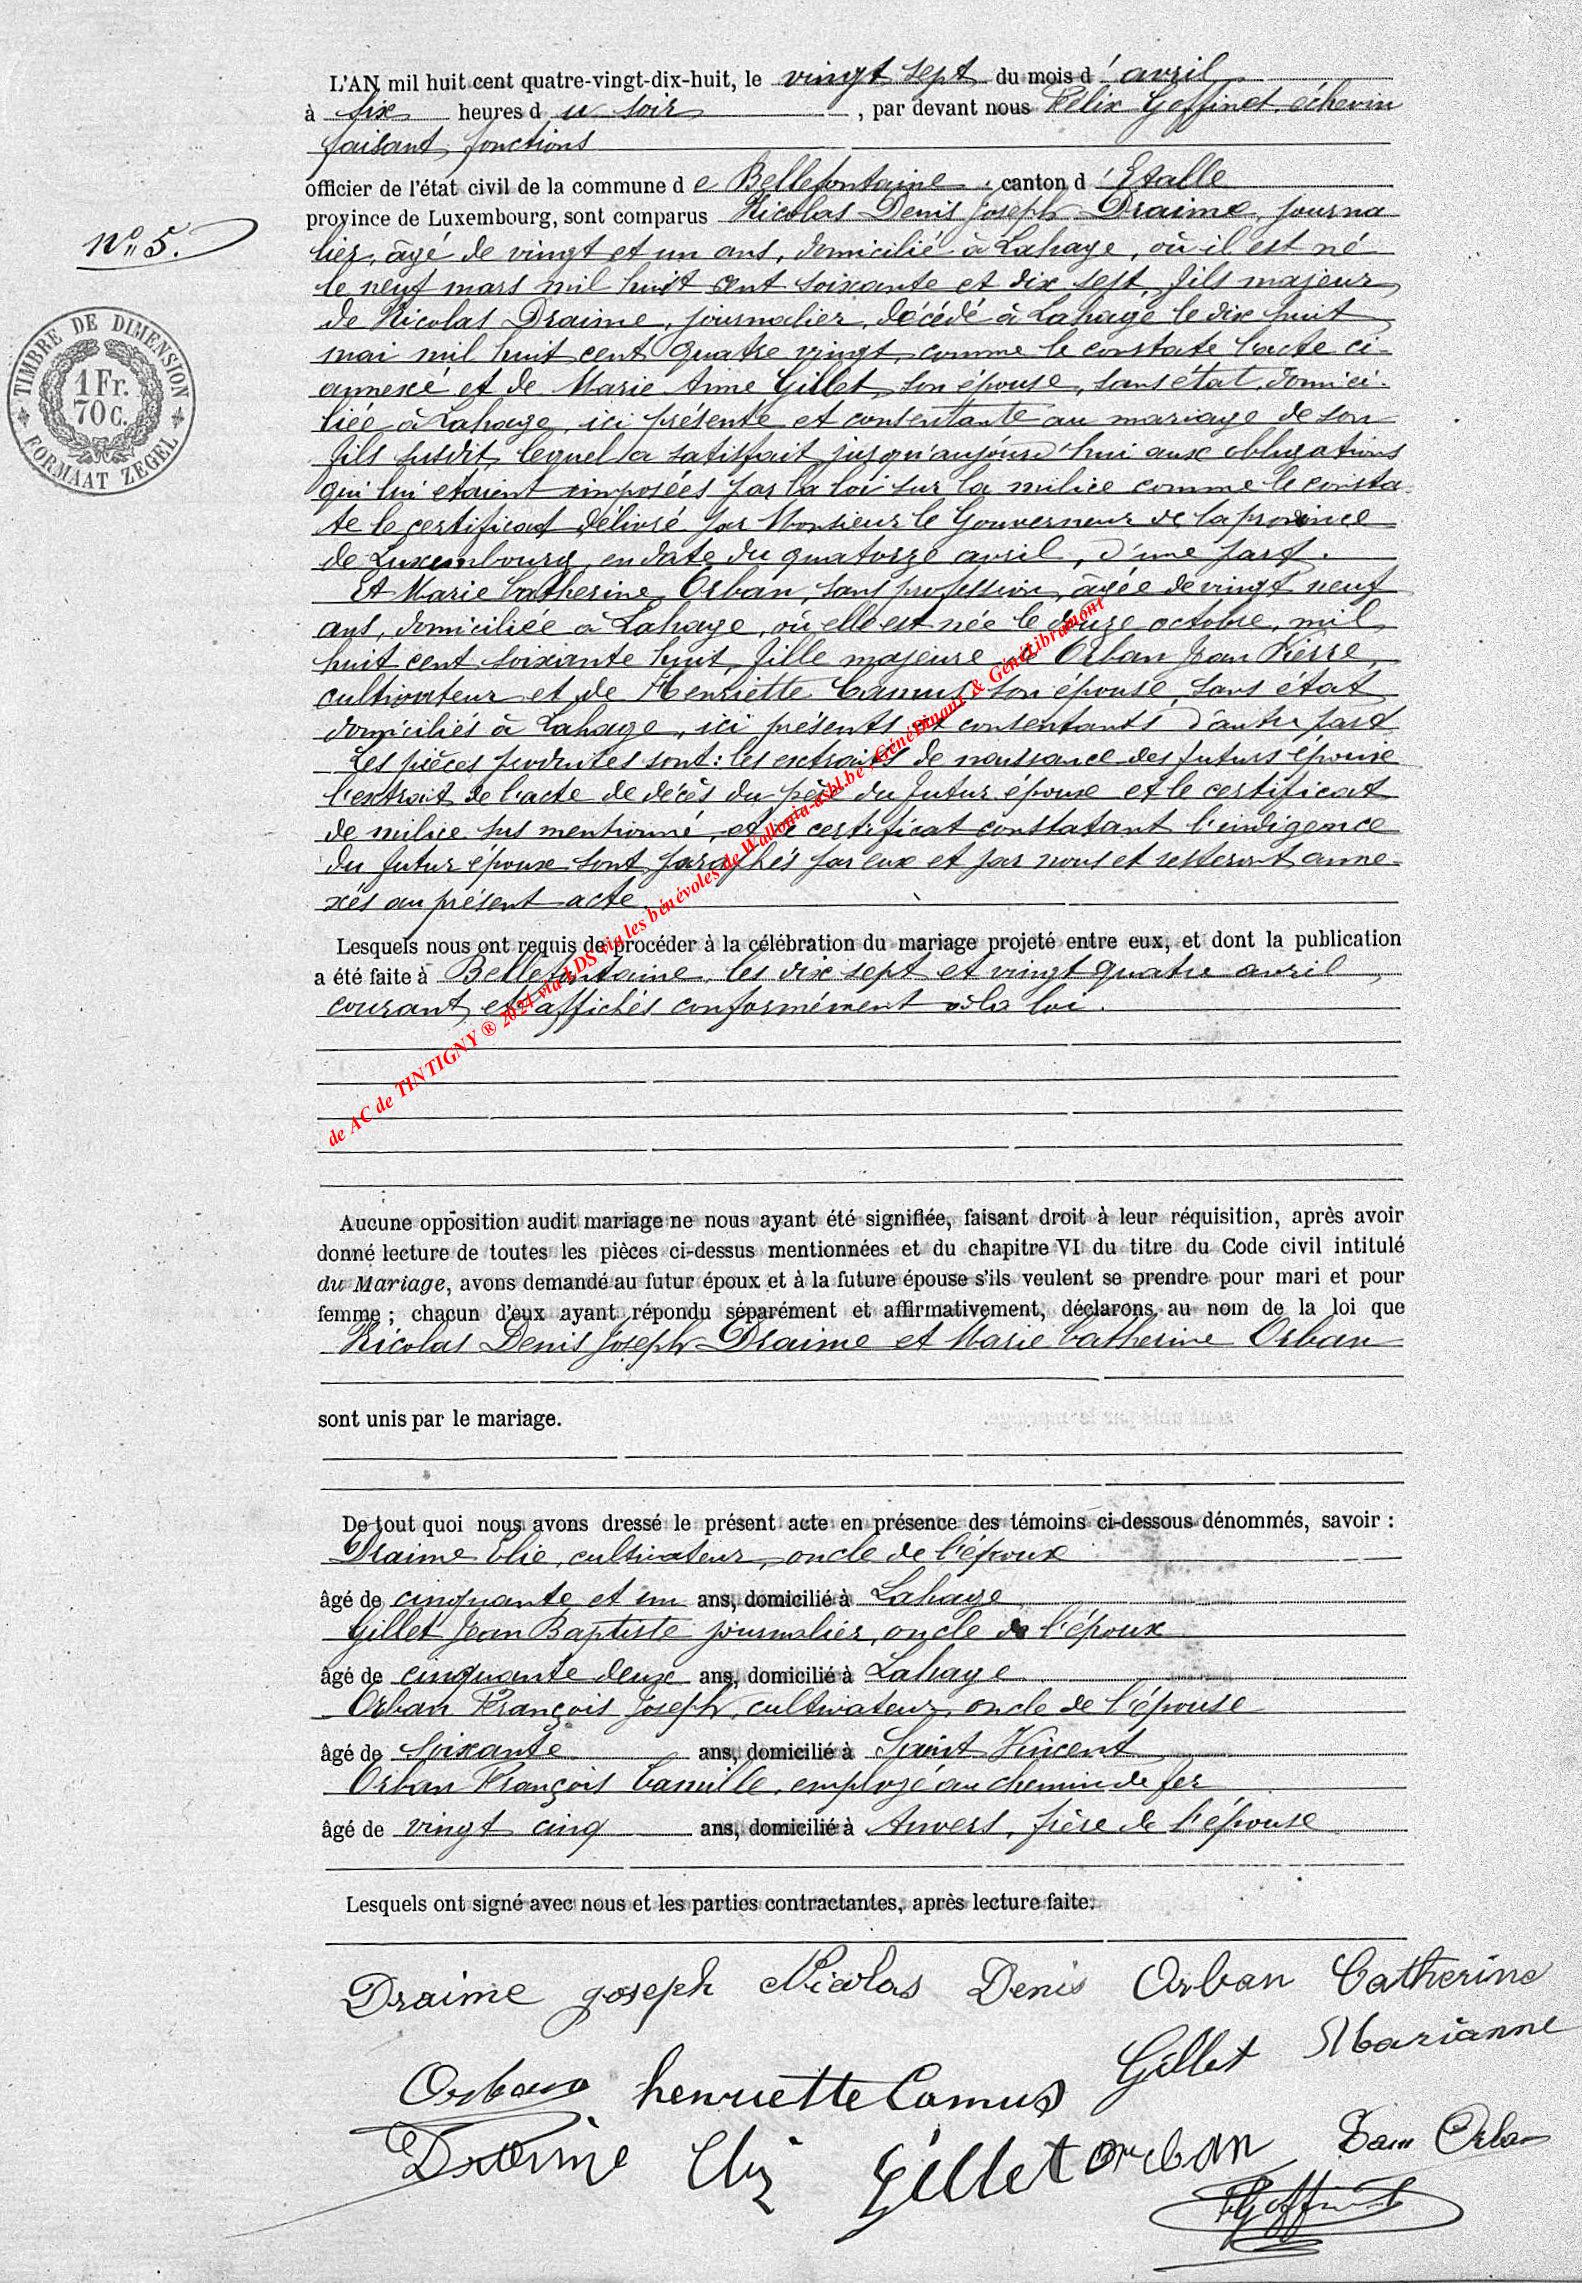 L'AN mil huit cent quatre-vingt-dix-huit, le vingt sept du mois d'avril
à six heures du soir, par devant nous Félix Goffinet, échevin
faisant fonctions
officier de l'état civil de la commune de Bellefontaine, canton d'Etalle
province de Luxembourg, sont comparus Nicolas Denis Joseph Draime, journa
N° 5.
lier, âgé de vingt et un ans, domicilié à Lahage, où il est né
le neuf mars mil huit cent soixante et dix sept, fils majeur
de Nicolas Draime, journalier, décédé à Lahage le dix huit
mai mil huit cent quatre vingt, comme le constate l'acte ci-
annexé et de Marie Anne Gillet, son épouse, sans état, domici-
liée à Lahage, ici présente et consentante au mariage de son
fils susdit, lequel a satisfait jusqu'aujourd'hui aux obligations
qui lui étaient imposées par la loi sur la milice comme le consta-
te le certificat délivré par Monsieur le Gouverneur de la province
de Luxembourg, en date du quatorze avril, d'une part.
Et Marie Catherine Orban, sans profession, âgée de vingt neuf
ans, domiciliée à Lahage, où elle est née le douze octobre, mil
huit cent soixante huit, fille majeure de Orban Jean Pierre,
cultivateur et de Henriette Camus son épouse, sans état
domiciliés à Lahage, ici présents et consentants, d'autre part
Les pièces produites sont: les extraits de naissance des futurs époux
l'extrait de l'acte de décès du père du futur époux et le certificat
de milice sus mentionné, et le certificat constatant l'indigence
du futur époux sont paraphés par eux et par nous et resteront anne-
xés au présent acte.
TIMBRE DE DIMENSION
1 Fr.
70 C.
FORMAAT ZEGEL
Lesquels nous ont requis de procéder à la célébration du mariage projeté entre eux, et dont la publication
a été faite à Bellefontaine, les dix sept et vingt quatre avril,
courant, et affichés conformément à la loi.
de AC de TINTIGNY ® 2024 via LDS via les bénévoles de Wallonia-asbl.be, GénéDinant & GénéLibramont
Aucune opposition audit mariage ne nous ayant été signifiée, faisant droit à leur réquisition, après avoir
donné lecture de toutes les pièces ci-dessus mentionnées et du chapitre VI du titre du Code civil intitulé
du Mariage, avons demandé au futur époux et à la future épouse s'ils veulent se prendre pour mari et pour
femme ; chacun d'eux ayant répondu séparément et affirmativement, déclarons au nom de la loi que
Nicolas Denis Joseph Draime et Marie Catherine Orban
sont unis par le mariage.
De tout quoi nous avons dressé le présent acte en présence des témoins ci-dessous dénommés, savoir :
Draime Elie, cultivateur, oncle de l'époux
âgé de cinquante et un ans, domicilié à Lahage
Gillet Jean Baptiste journalier, oncle de l'époux
âgé de cinquante deux ans, domicilié à Lahage
Orban François Joseph, cultivateur, oncle de l'épouse
âgé de soixante ans, domicilié à Saint Vincent
Orban François Camille, employé au chemin de fer
âgé de vingt cinq ans, domicilié à Anvers, frère de l'épouse
Lesquels ont signé avec nous et les parties contractantes, après lecture faite.
Draime Joseph Nicolas Denis Orban Catherine
Orban henriette Camus Gillet Marianne
Draime Elie Gillet Orban Orban
Goffinet